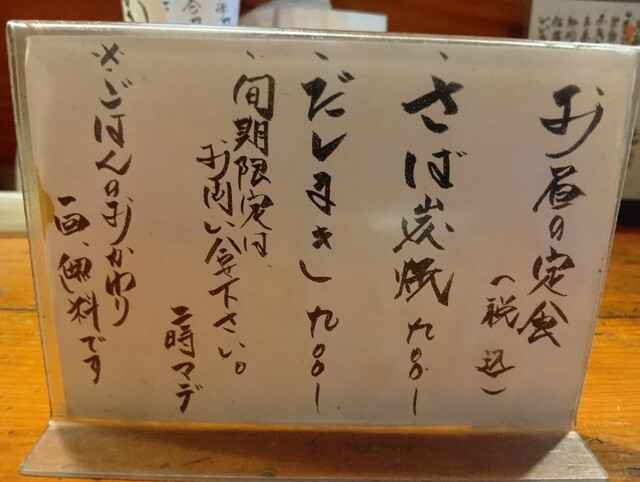 お昼の定食
（税込）
、さば炭焼 九〇〇ー
、だしまき 九〇〇ー
、旬期限定は、
お問い合せ下さい。
二時マデ
※ごはんのおかわり
一回、無料です